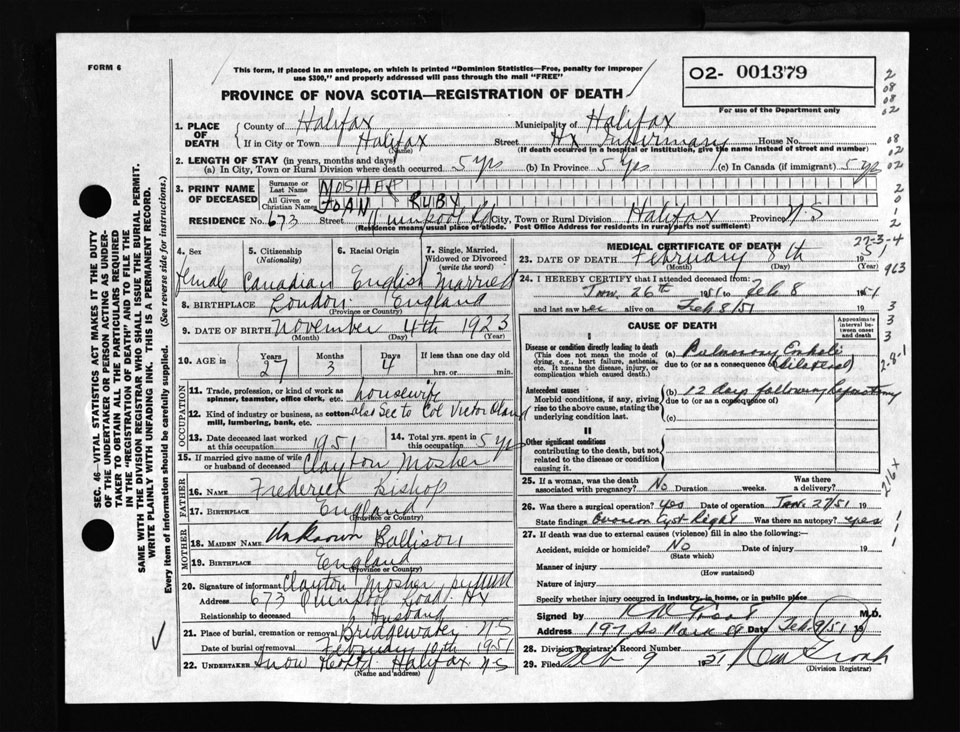 FORM 6
This form, if placed in an envelope, on which is printed "Dominion Statistics—Free, penalty for improper
use $300," and properly addressed will pass through the mail "FREE"
O2- 001379
For use of the Department only
PROVINCE OF NOVA SCOTIA—REGISTRATION OF DEATH
1. PLACE OF DEATH County of Halifax Municipality of Halifax
If in City or Town Halifax (Name) Street Hx Infirmary House No.
(If death occurred in a hospital or institution, give the name instead of street and number)
2. LENGTH OF STAY (in years, months and days)
(a) In City, Town or Rural Division where death occurred 5 yrs (b) In Province 5 yrs (c) In Canada (if immigrant) 5 yrs
3. PRINT NAME OF DECEASED Surname or Last Name MOSHER
All Given or Christian Names JOAN RUBY
RESIDENCE No. 673 Street Quinpool Rd City, Town or Rural Division Halifax Province N.S
(Residence means usual place of abode. Post Office Address for residents in rural parts not sufficient)
4. Sex female
5. Citizenship (Nationality) Canadian
6. Racial Origin English
7. Single, Married, Widowed or Divorced (write the word) Married
8. BIRTHPLACE London England
(Province or Country)
9. DATE OF BIRTH November 4th 1923
(Month) (Day) (Year)
10. AGE in Years 27 Months 3 Days 4 If less than one day
hrs. or min.
OCCUPATION
11. Trade, profession, or kind of work as spinner, teamster, office clerk, etc. housewife
12. Kind of industry or business, as cotton mill, lumbering, bank, etc. also Sec to Col Victor Oland
13. Date deceased last worked at this occupation 1951
14. Total yrs. spent in this occupation 5 yrs
15. If married give name of wife or husband of deceased Clayton Mosher
FATHER
16. NAME Frederick Bishop
17. BIRTHPLACE England
(Province or Country)
MOTHER
18. MAIDEN NAME Unknown Ballison
19. BIRTHPLACE England
(Province or Country)
20. Signature of informant Clayton Mosher
Address 673 Quinpool Road Hx
Relationship to deceased Husband
21. Place of burial, cremation or removal Bridgewater N.S
Date of burial or removal February 10th 1951
22. UNDERTAKER Snow Halifax N.S
(Name and address)
MEDICAL CERTIFICATE OF DEATH
23. DATE OF DEATH February 8th 1951
(Month) (Day) (Year)
24. I HEREBY CERTIFY that I attended deceased from:
Jan. 26th 1951 to Feb 8 1951
and last saw her alive on Feb 8/51
CAUSE OF DEATH
Approximate interval between onset and death
I
Disease or condition directly leading to death
(This does not mean the mode of dying, e.g., heart failure, asthenia, etc. It means the disease, injury, or complication which caused death.)
(a) Pulmonary Emboli
due to (or as a consequence of) (bilateral)
Antecedent causes
Morbid conditions, if any, giving rise to the above cause, stating the underlying condition last.
(b) 12 days following laparotomy
due to (or as a consequence of)
(c)
II
Other significant conditions
contributing to the death, but not related to the disease or condition causing it.
25. If a woman, was the death associated with pregnancy? No Duration weeks. Was there a delivery?
26. Was there surgical operation? Yes Date of operation Jan. 27/51 19
State findings Ovarian Cyst Right Was there an autopsy? yes
27. If death was due to external causes (violence) fill in also the following:—
Accident, suicide or homicide? No Date of injury 19
(State which)
Manner of injury
(How sustained)
Nature of injury
Specify whether injury occurred in industry, in home, or in public place
Signed by M.D.
Address 197 So Park St Date Feb. 9/51 19
28. Division Registrar's Record Number
29. Filed Feb. 9 1951
(Division Registrar)
SEC. 46—VITAL STATISTICS ACT MAKES IT THE DUTY
OF THE UNDERTAKER OR PERSON ACTING AS UNDER-
TAKER TO OBTAIN ALL THE PARTICULARS REQUIRED
IN THE "REGISTRATION OF DEATH" AND TO FILE THE
SAME WITH THE DIVISION REGISTRAR WHO SHALL ISSUE THE BURIAL PERMIT.
WRITE PLAINLY WITH UNFADING INK. THIS IS A PERMANENT RECORD.
Every item of information should be carefully supplied. (See reverse side for instructions.)
2
08
08
02
08
02
02
2
0
1
2
27-3-4
963
3
3
3
2-8-1
216X
1
1